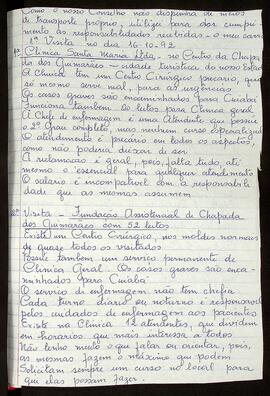 Como o nosso Conselho não dispunha de meios
de transporte próprio, utilizei para dar cumpri-
mento às responsabilidades recebidas - o meu carro
1ª Visita no dia 16.10.92
Clínica Santa Maria Ltda. - no Centro da Chapa
da dos Guimarães - cidade turística do nosso Estado
A Clínica tem um Centro Cirúrgico precário, que
só mesmo serve mal, para as urgências.
Os casos graves são encaminhados para Cuiabá
Funciona também 20 leitos para Clínica geral
A Chefe de enfermagem é uma Atendente que possue
o 2º Grau completo, mas nenhum curso especializado
O atendimento é precário em todos os aspectos,
como não poderia deixar de ser.
A reclamação é geral, pois, falta tudo, até
mesmo o essencial para qualquer atendimento
O salário é incompatível com a responsabili
dade que as mesmas assumem
2ª Visita - Fundação Assistencial de Chapada
dos Guimarães com 52 leitos
Existe um Centro Cirúrgico, nos moldes normais
de quase todos os visitados
Possui também um serviço permanente de
Clínica Geral. Os casos graves são enca-
minhados para Cuiabá
O serviço de enfermagem não tem chefia
Cada turno diário ou noturno é responsável
pelos cuidados de enfermagem aos pacientes
Existe na Clínica 12 atendentes, que dividem
em horários que mais interessa a todos
Não tenho muito o que falar ou orientar, pois,
as mesmas fazem o máximo que podem
Solicitam sempre um curso no local para
que elas possam fazer.